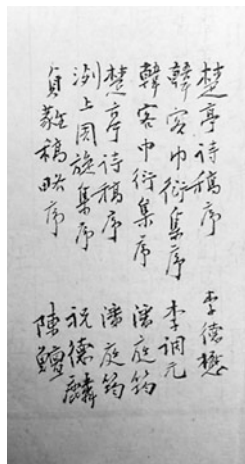 楚亭诗稿序 李德懋
韓客巾衍集序 李调元
韓客巾衍集序 潘庭筠
楚亭诗稿序 潘庭筠
洌上周旋集序 祝德麟
貞蕤稿略序 陳鱣